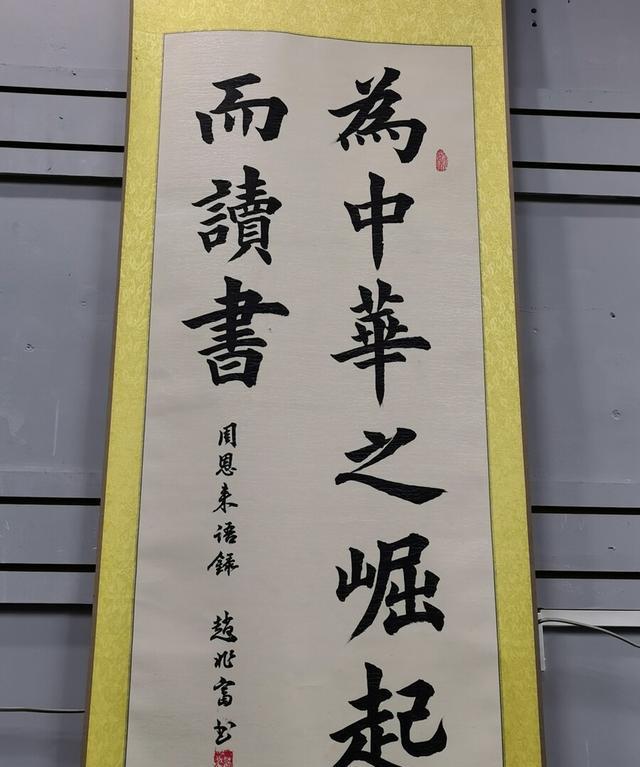 為中華之崛起
而讀書
周恩来语録
趙兆富书